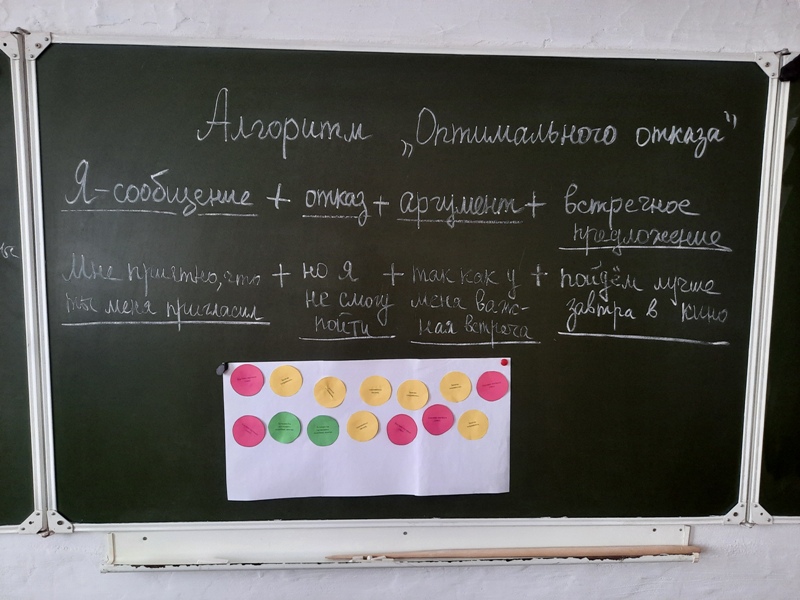 Алгоритм „Оптимального отказа"
Я-сообщение + отказ + аргумент + встречное
предложение
Мне приятно, что + но я + так как у + пойдём лучше
ты меня пригласил не смогу меня важ- завтра в кино
пойти ная встреча